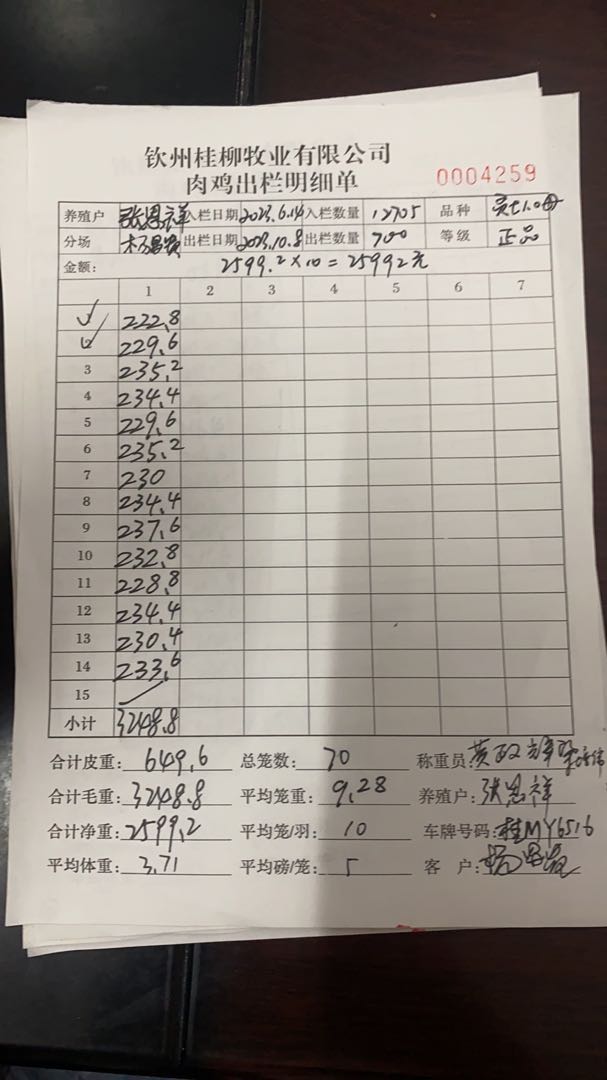 钦州桂柳牧业有限公司
肉鸡出栏明细单
0004259
养殖户 张恩祥 入栏日期 2023.6.14 入栏数量 12705 品种
分场 出栏日期 2023.10.8 出栏数量 700 等级 正品
金额: 2599.2×10=25992元
1 2 3 4 5 6 7
222.8
229.6
3 235.2
4 234.4
5 229.6
6 235.2
7 230
8 234.4
9 237.6
10 232.8
11 228.8
12 234.4
13 230.4
14 233.6
15
小计 3248.8
合计皮重: 649.6 总笼数: 70 称重员:
合计毛重: 3248.8 平均笼重: 9.28 养殖户: 张恩祥
合计净重: 2599.2 平均笼/羽: 10 车牌号码: 桂MY6516
平均体重: 3.71 平均磅/笼: 5 客 户: